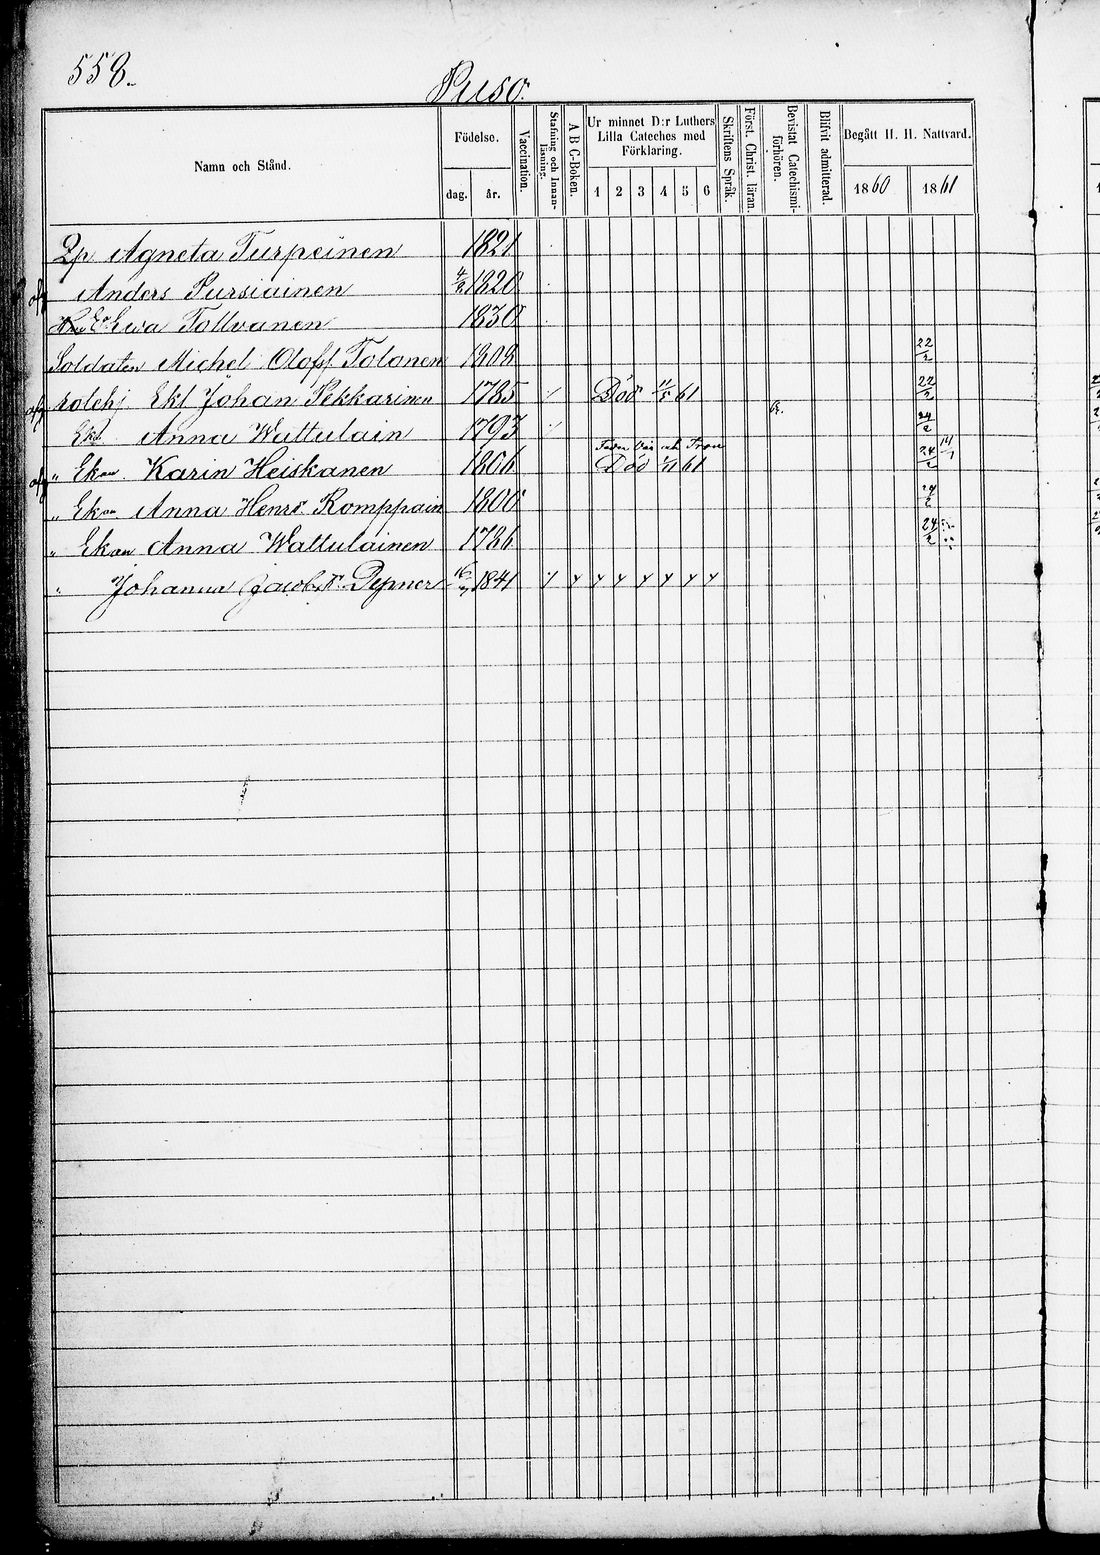 558.
Puso.
Namn och Stånd. Födelse. dag. år. Vaccination. Stafning och Innan-läsning. A B C-Boken. Ur minnet D:r Luthers Lilla Cateches med Förklaring. 1 2 3 4 5 6 Skriftens Språk. Först. Christ. läran. Bevistat Catechismi-förhören. Blifvit admitterad. Begått H. H. Nattvard. 1860 1861
Lp Agneta Turpeinen 1821
Anders Pursiainen 4/2 1820
Ewa Tollvanen 1830
Soldaten Michel Oloff Tolonen 1808 22/2
rotehj Ekl Johan Pekkarinen 1785 Död 11/5 61 22/2
Ekl Anna Wattulain 1793 24/2
" Ekan Karin Heiskanen 1866 Död 61 24/2 14/7
" Ekan Anna Henrs Romppain 1800 24/2
" Ekan Anna Wattulainen 1786 24/2
" Johanna Jacobsdr Depner 1841